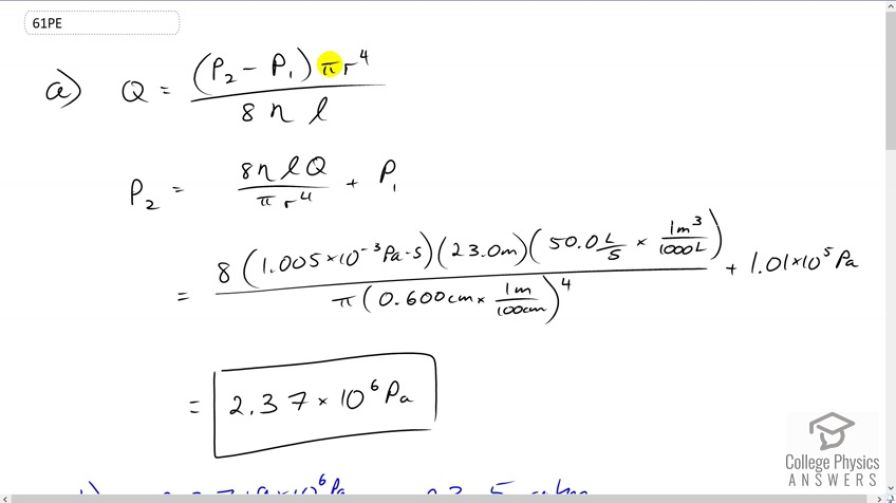 61PE
a) Q = (P₂ - P₁) π r⁴ / 8 η l
P₂ = 8 η l Q / π r⁴ + P₁
= 8 (1.005 × 10⁻³ Pa·s) (23.0 m) (50.0 L/s × 1m³/1000L) / π (0.600 cm × 1m/100cm)⁴ + 1.01 × 10⁵ Pa
= 2.37 × 10⁶ Pa
College Physics
ANSWERS